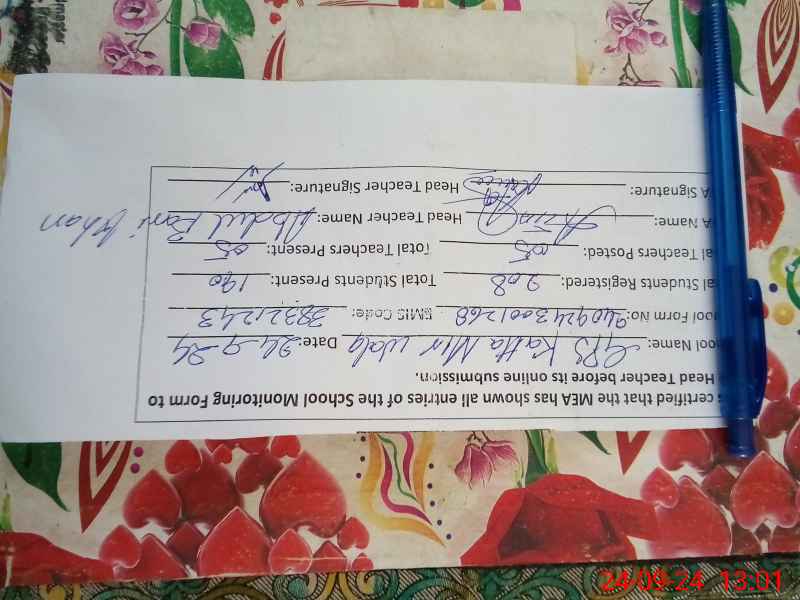 s certified that the MEA has shown all entries of the School Monitoring Form to
e Head Teacher before its online submission.
ool Name: GPS Katta Mir Wala Date: 24-9-24
ool Form No: 2409243001268 EMIS Code: 38321243
al Students Registered: 208 Total Students Present: 190
al Teachers Posted: 05 Total Teachers Present: 05
A Name: Head Teacher Name: Abdul Bari Khan
A Signature: Head Teacher Signature:
24-09-24 13:01